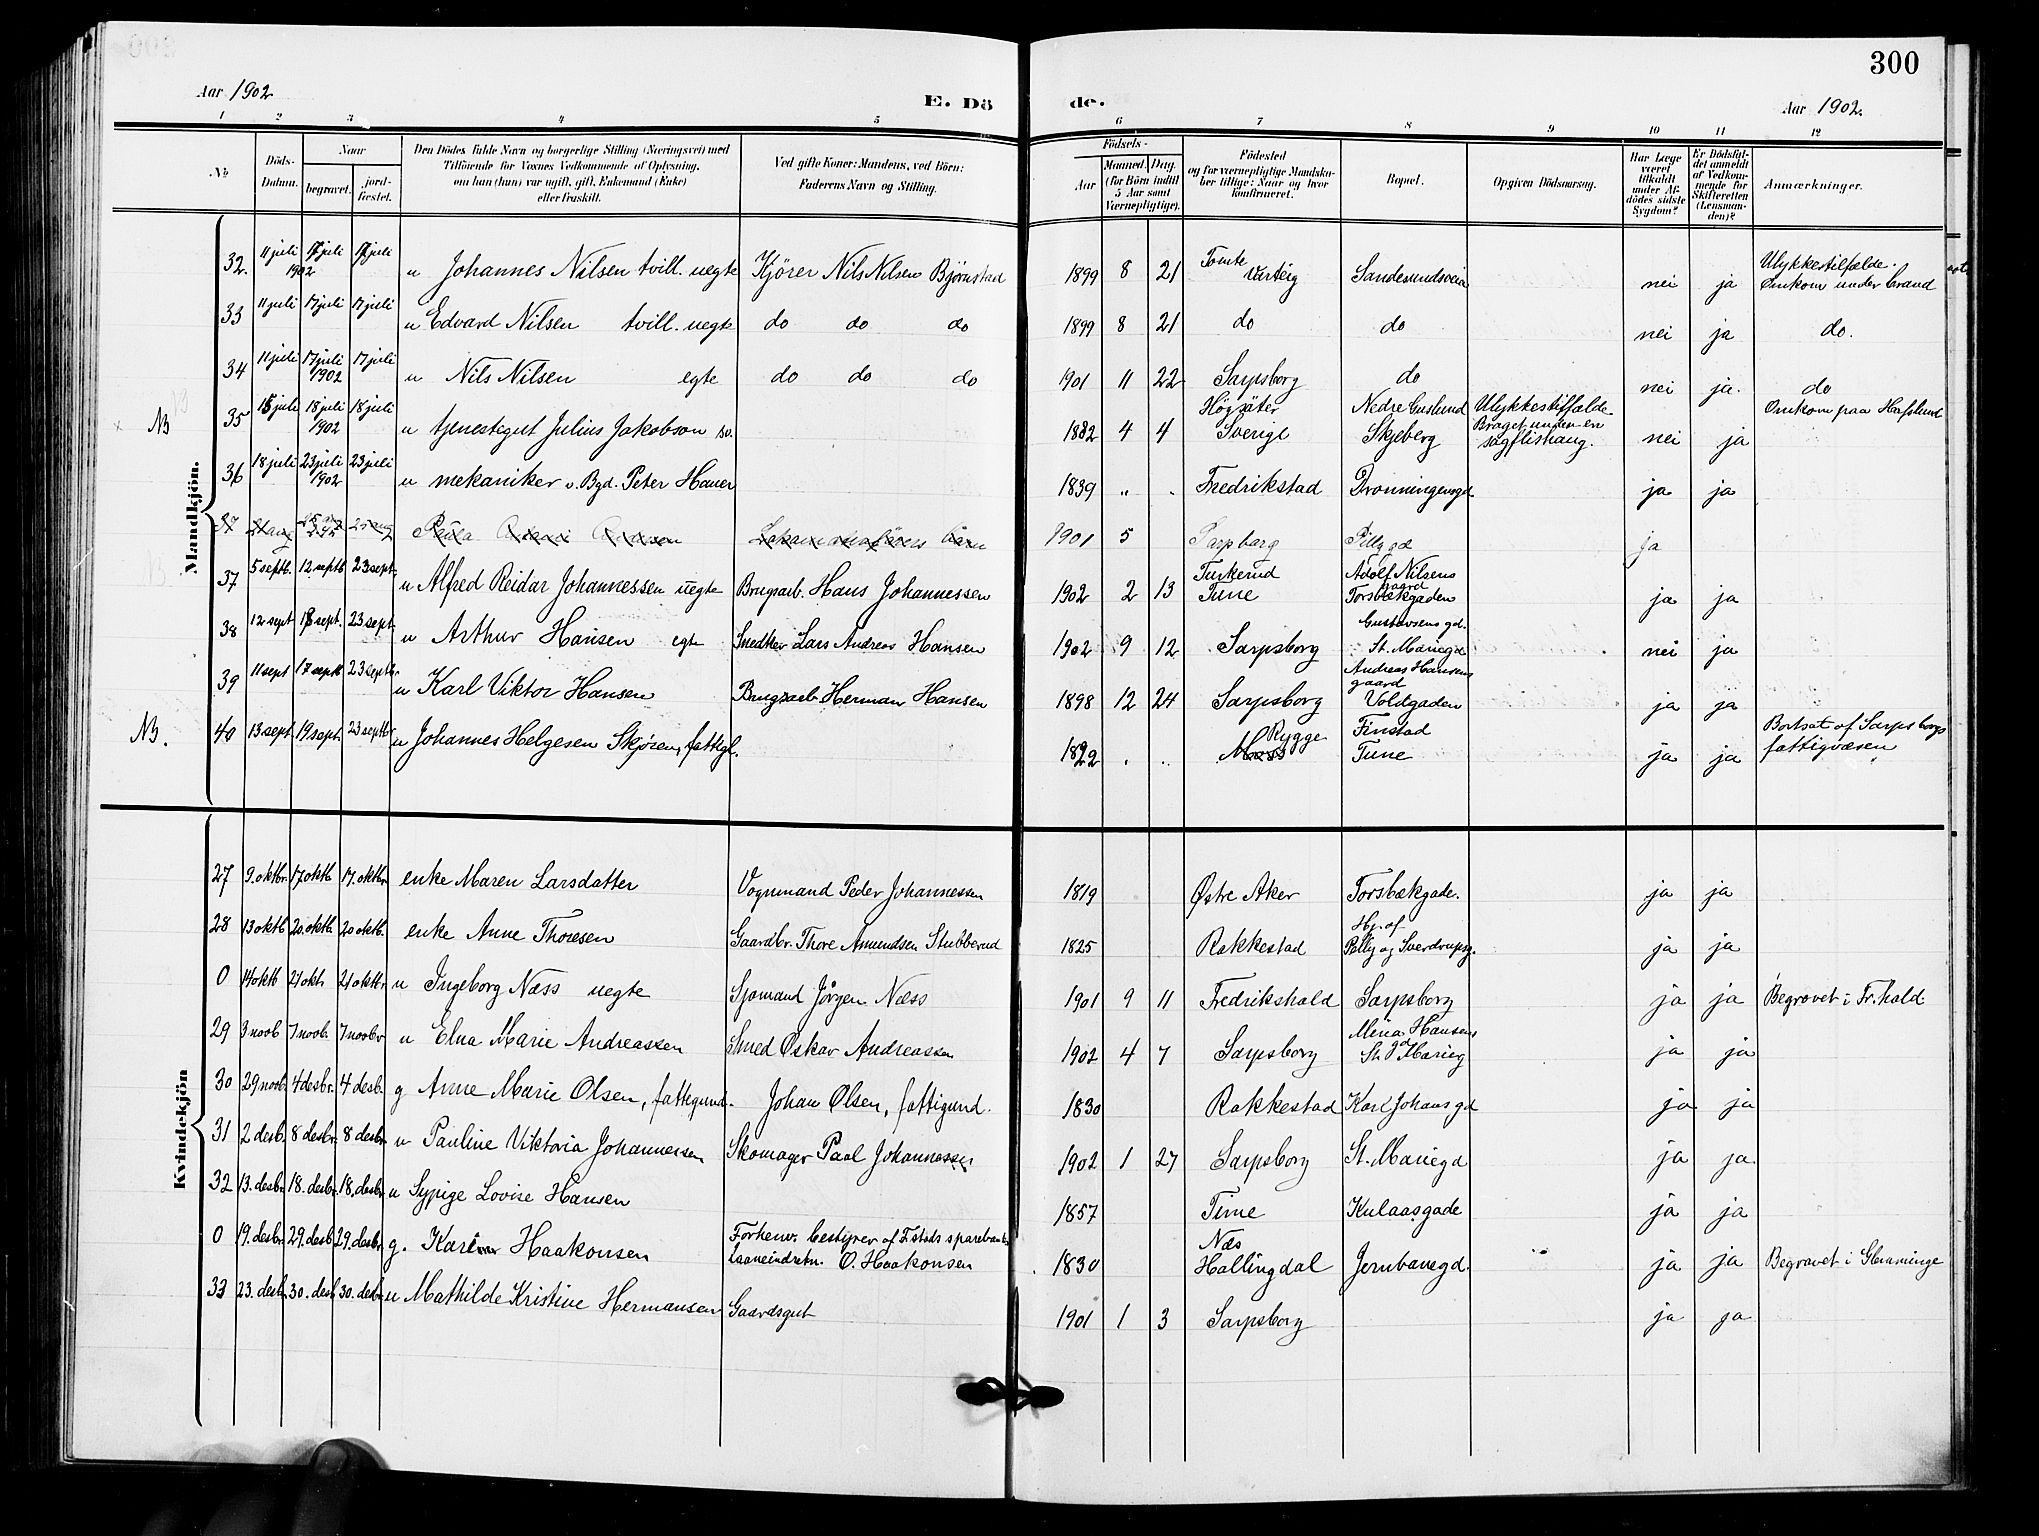 300
Aar 1902
E. Dö
de.
Aar 1902.
1 2 3 4 5 6 7 8 9 10 11 12
No
Döds-Datum.
Naar
begravet.
jord-fæstet.
Den Dödes fulde Navn og borgerlige Stilling (Næringsvei) med
Tilföiende for Voxnes Vedkommende af Oplysning,
om han (hun) var ugift, gift, Enkemand (Enke)
eller fraskilt.
Ved gifte Koner: Mandens, ved Börn:
Faderens Navn og Stilling.
Födsels-
Aar
Maaned. Dag.
(for Börn indtil
5 Aar samt
Værnepligtige).
Födested
og for værnepligtige Mandska-
ber tillige: Naar og hvor
konfirmeret.
Bopæl.
Opgiven Dödsaarsag.
Har Læge
været
tilkaldt
under Af-
dödes sidste
Sygdom?
Er Dödsfal-
det anmeldt
af Vedkom-
mende for
Skifteretten
(Lensman-
den)?
Anmærkninger.
Mandkjön.
32. 11 juli 1902 17 juli 17 juli u Johannes Nilsen tvill. uegte Kjörer Nils Nilsen Björnstad 1899 8 21 Tomte Varteig Sandesundsveien nei ja Ulykkestilfælde. Omkom under brand
33 11 juli 17 juli 17 juli u Edvard Nilsen tvill. uegte do do do 1899 8 21 do do nei ja do.
34 11 juli 17 juli 1902 17 juli u Nils Nilsen egte do do do 1901 11 22 Sarpsborg do nei ja. do
NB 35 15 juli 18 juli 1902 18 juli u tjenestegut Julius Jakobson sv. 1882 4 4 Högsäter Sverige Nedre Guslund Skjeberg Ulykkestilfælde Braget under en sagflishaug. nei ja Omkom paa Hafslund
36 18 juli 23 juli 1902 23 juli u mekaniker v. Byd. Peter Hauer 1839 " . Fredrikstad Dronningensgd ja ja
37 25 aug Paula 1901 5 Sarpsborg Pillygd ja
37 5 septb. 12. septb 23 sept. u Alfred Reidar Johannessen uegte Brugsarb. Hans Johannessen 1902 2 13 Turkerud Tune Adolf Nilsens gaard Torsbækgaden ja ja
38 12 sept 18 sept. 23 sept. u Arthur Hansen egte Snedker Lars Andreas Hansen 1902 9 12 Sarpsborg Gustavsens gd. St. Mariegd nei ja
39 11 sept 17 septb 23 septbr u Karl Viktor Hansen Brugsarb Herman Hansen 1898 12 24 Sarpsborg Andreas Hansens gaard Voldgaden ja ja
NB. 40 13 sept 19 sept. 23 septbr u Johannes Helgesen Skjören, fattigl. 1822 . .. Rygge Moss Finstad Tune ja ja Bortsat af Sarpsborgs fattigvæsen
Kvindekjön
27 9. oktbr 17. oktb 17. oktbr enke Maren Larsdatter Vognmand Peder Johannessen 1819 Østre Aker Torsbækgade. ja ja
28 13 oktb 20. oktb. 20 oktb. enke Anne Thoresen Gaardbr. Thore Amundsen Stubberud 1825 Rakkestad Hj. af Pelly og Sverdrupsg. ja ja
0 14 oktb 21 okt 21 oktbr u Ingeborg Næss uegte Sjömand Jörgen Næss 1901 9 11 Fredrikshald Sarpsborg ja ja Begravet i Fr.hald
29 3 novb 7 novb. 7 novbr u Elna Marie Andreassen Smed Oskar Andreassen 1902 4 7 Sarpsborg Mina Hansens gd St. Marieg ja ja
30 29 novb. 4 desbr. 4 desb. g Anne Marie Olsen, fattigund. Johan Olsen, fattigund. 1830 Rakkestad Karl Johans gd ja ja
31 2 desb. 8 desbr. 8 desbr u Pauline Viktoria Johannessen Skomager Paal Johannessen 1902 1 27 Sarpsborg St. Mariegd ja ja.
32 13. desbr. 18. desbr. 18. desbr. u Sypige Lovise Hansen 1857 Tune Kulaasgade ja ja
0 19. desbr. 29. desb. 29. desbr. g. Karen Haakonsen Forhenv. bestyrer af Fstads sparebanks laaneindretn. O. Haakonsen 1830 Næs Hallingdal Jernbanegd. ja ja Begravet i Glemminge
33 23. desb. 30. desb. 30. desbr u Mathilde Kristine Hermansen Gaardsgut 1901 1 3 Sarpsborg ja ja